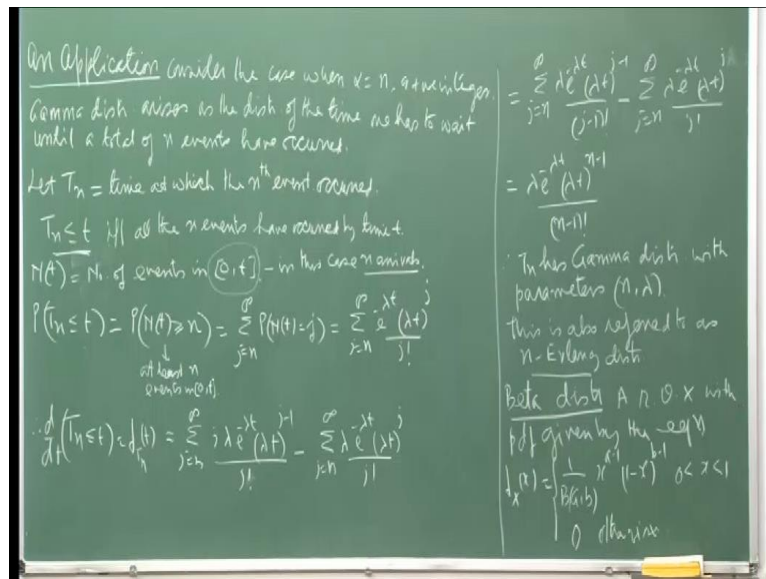 An Application Consider the case when α = n, a +ve integer.
Gamma distn arises as the distn of the time one has to wait
until a total of n events have occurred.
Let Tn = time at which the nth event occurred.
Tn ≤ t iff all the n events have occurred by time t.
N(t) = No. of events in [0,t] - in this case n arrivals.
P(Tn ≤ t) = P(N(t) ≥ n) = ∑_{j=n}^{∞} P(N(t)=j) = ∑_{j=n}^{∞} e^{-λt} (λt)^j / j!
↓
at least n
events in [0,t].
∴ d/dt (Tn ≤ t) = f_{Tn}(t) = ∑_{j=n}^{∞} j λ e^{-λt} (λt)^{j-1} / j! - ∑_{j=n}^{∞} λ e^{-λt} (λt)^j / j!
= ∑_{j=n}^{∞} λ e^{-λt} (λt)^{j-1} / (j-1)! - ∑_{j=n}^{∞} λ e^{-λt} (λt)^j / j!
= λ e^{-λt} (λt)^{n-1} / (n-1)!
∴ Tn has Gamma distn with
parameters (n, λ).
This is also referred to as
n-Erlang distn
Beta distn A R.V. X with
pdf given by the eqn
f_X(x) = { 1/B(a,b) x^{a-1} (1-x)^{b-1} 0 < x < 1
0 otherwise